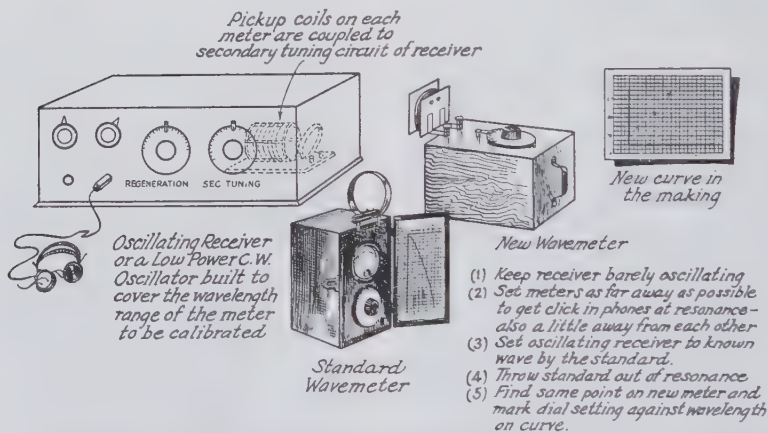 Pickup coils on each
meter are coupled to
secondary tuning circuit of receiver
REGENERATION SEC TUNING
Oscillating Receiver
or a Low Power C.W.
Oscillator built to
cover the wavelength
range of the meter
to be calibrated
Standard
Wavemeter
New Wavemeter
New curve in
the making
(1) Keep receiver barely oscillating
(2) Set meters as far away as possible
to get click in phones at resonance-
also a little away from each other
(3) Set oscillating receiver to known
wave by the standard.
(4) Throw standard out of resonance
(5) Find same point on new meter and
mark dial setting against wavelength
on curve.